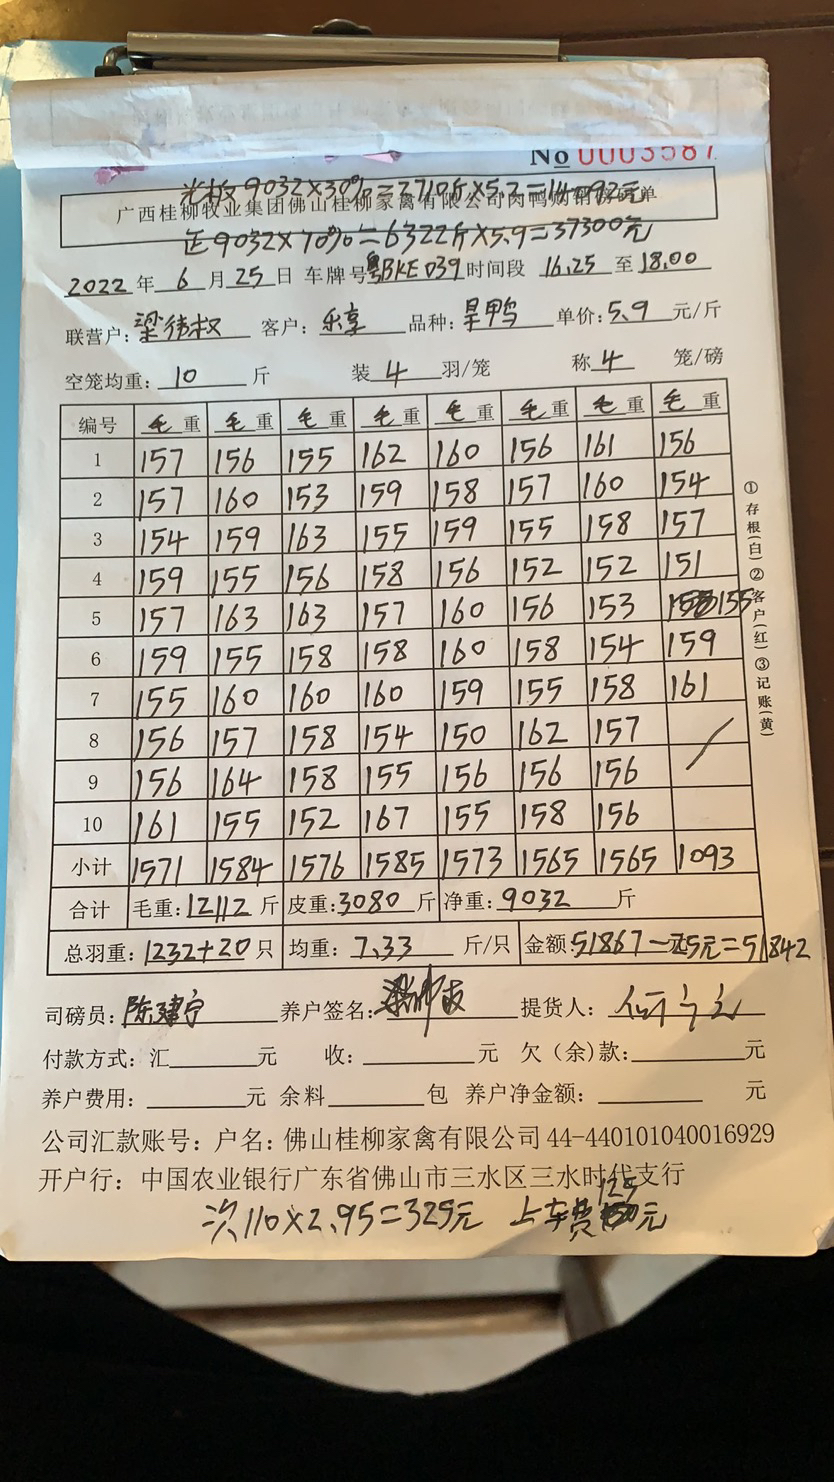 No 0003587
光板9032×30%=2710斤×5.2=14092元
广西桂柳牧业集团佛山桂柳家禽有限公司肉鸭购销磅码单
正9032×70%=6322斤×5.9=37300元
2022 年 6 月 25 日 车牌号 粤BKE039 时间段 16.25 至 18.00
联营户: 梁伟权 客户: 乐享 品种: 旱鸭 单价: 5.9 元/斤
空笼均重: 10 斤 装 4 羽/笼 称 4 笼/磅
编号 毛重 毛重 毛重 毛重 毛重 毛重 毛重 毛重
1 157 156 155 162 160 156 161 156
2 157 160 153 159 158 157 160 154
3 154 159 163 155 159 155 158 157
4 159 155 156 158 156 152 152 151
5 157 163 163 157 160 156 153 155
6 159 155 158 158 160 158 154 159
7 155 160 160 160 159 155 158 161
8 156 157 158 154 150 162 157
9 156 164 158 155 156 156 156
10 161 155 152 167 155 158 156
小计 1571 1584 1576 1585 1573 1565 1565 1093
合计 毛重: 12112 斤 皮重: 3080 斤 净重: 9032 斤
总羽重: 1232+20 只 均重: 7.33 斤/只 金额: 51867-25元=51842
司磅员: 陈建宁 养户签名: 提货人:
付款方式: 汇 元 收: 元 欠(余)款: 元
养户费用: 元 余料 包 养户净金额: 元
公司汇款账号: 户名: 佛山桂柳家禽有限公司 44-440101040016929
开户行: 中国农业银行广东省佛山市三水区三水时代支行
次110×2.95=325元 上车费125元
①存根(白)②客户(红)③记账(黄)